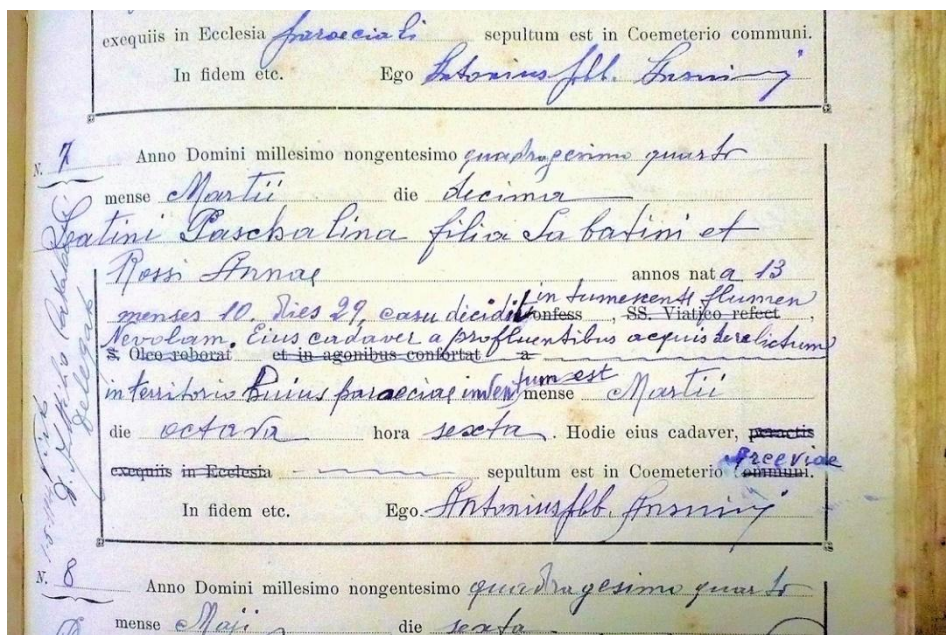 exequiis in Ecclesia paroeciali sepultum est in Coemeterio communi.
In fidem etc. Ego Antonius
N. 7 Anno Domini millesimo nongentesimo quadragesimo quarto
mense Martii die decima
Latini Paschalina filia Sabatini et
Rossi Annae annos nata 13
menses 10. Dies 29, casu decidit in tumescenti flumen
confess , SS. Viatico refect ,
Nevolam. Eius cadaver a profluentibus acquis derelictum
S. Oleo roborat et in agonibus confortat a
in territorio huius paraeciae inventum est mense Martii
die octava hora sexta. Hodie eius cadaver, peractis
exequiis in Ecclesia sepultum est in Coemeterio communi.
In fidem etc. Ego Antonius
N. 8 Anno Domini millesimo nongentesimo quadragesimo quarto
mense Maji die sexta